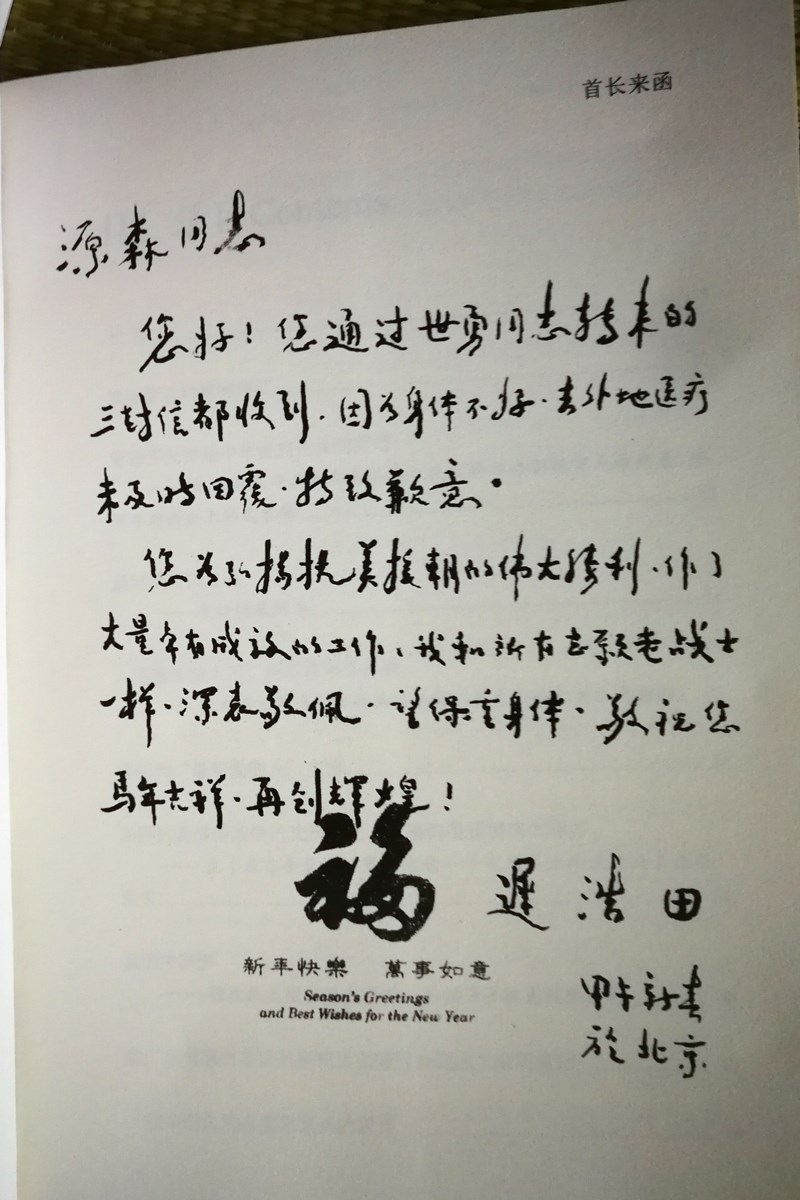 首长来函
源森同志
您好！您通过世勇同志转来的
三封信都收到．因为身体不好．去外地医疗
未及时回覆．特致歉意．
您为弘扬抗美援朝的伟大胜利．作了
大量卓有成效的工作、我和所有志愿老战士
一样．深表敬佩．望保重身体．敬祝您
馬年吉祥．再创辉煌！
福
遲浩田
新年快樂 萬事如意
Season's Greetings
and Best Wishes for the New Year
甲午新春
於北京